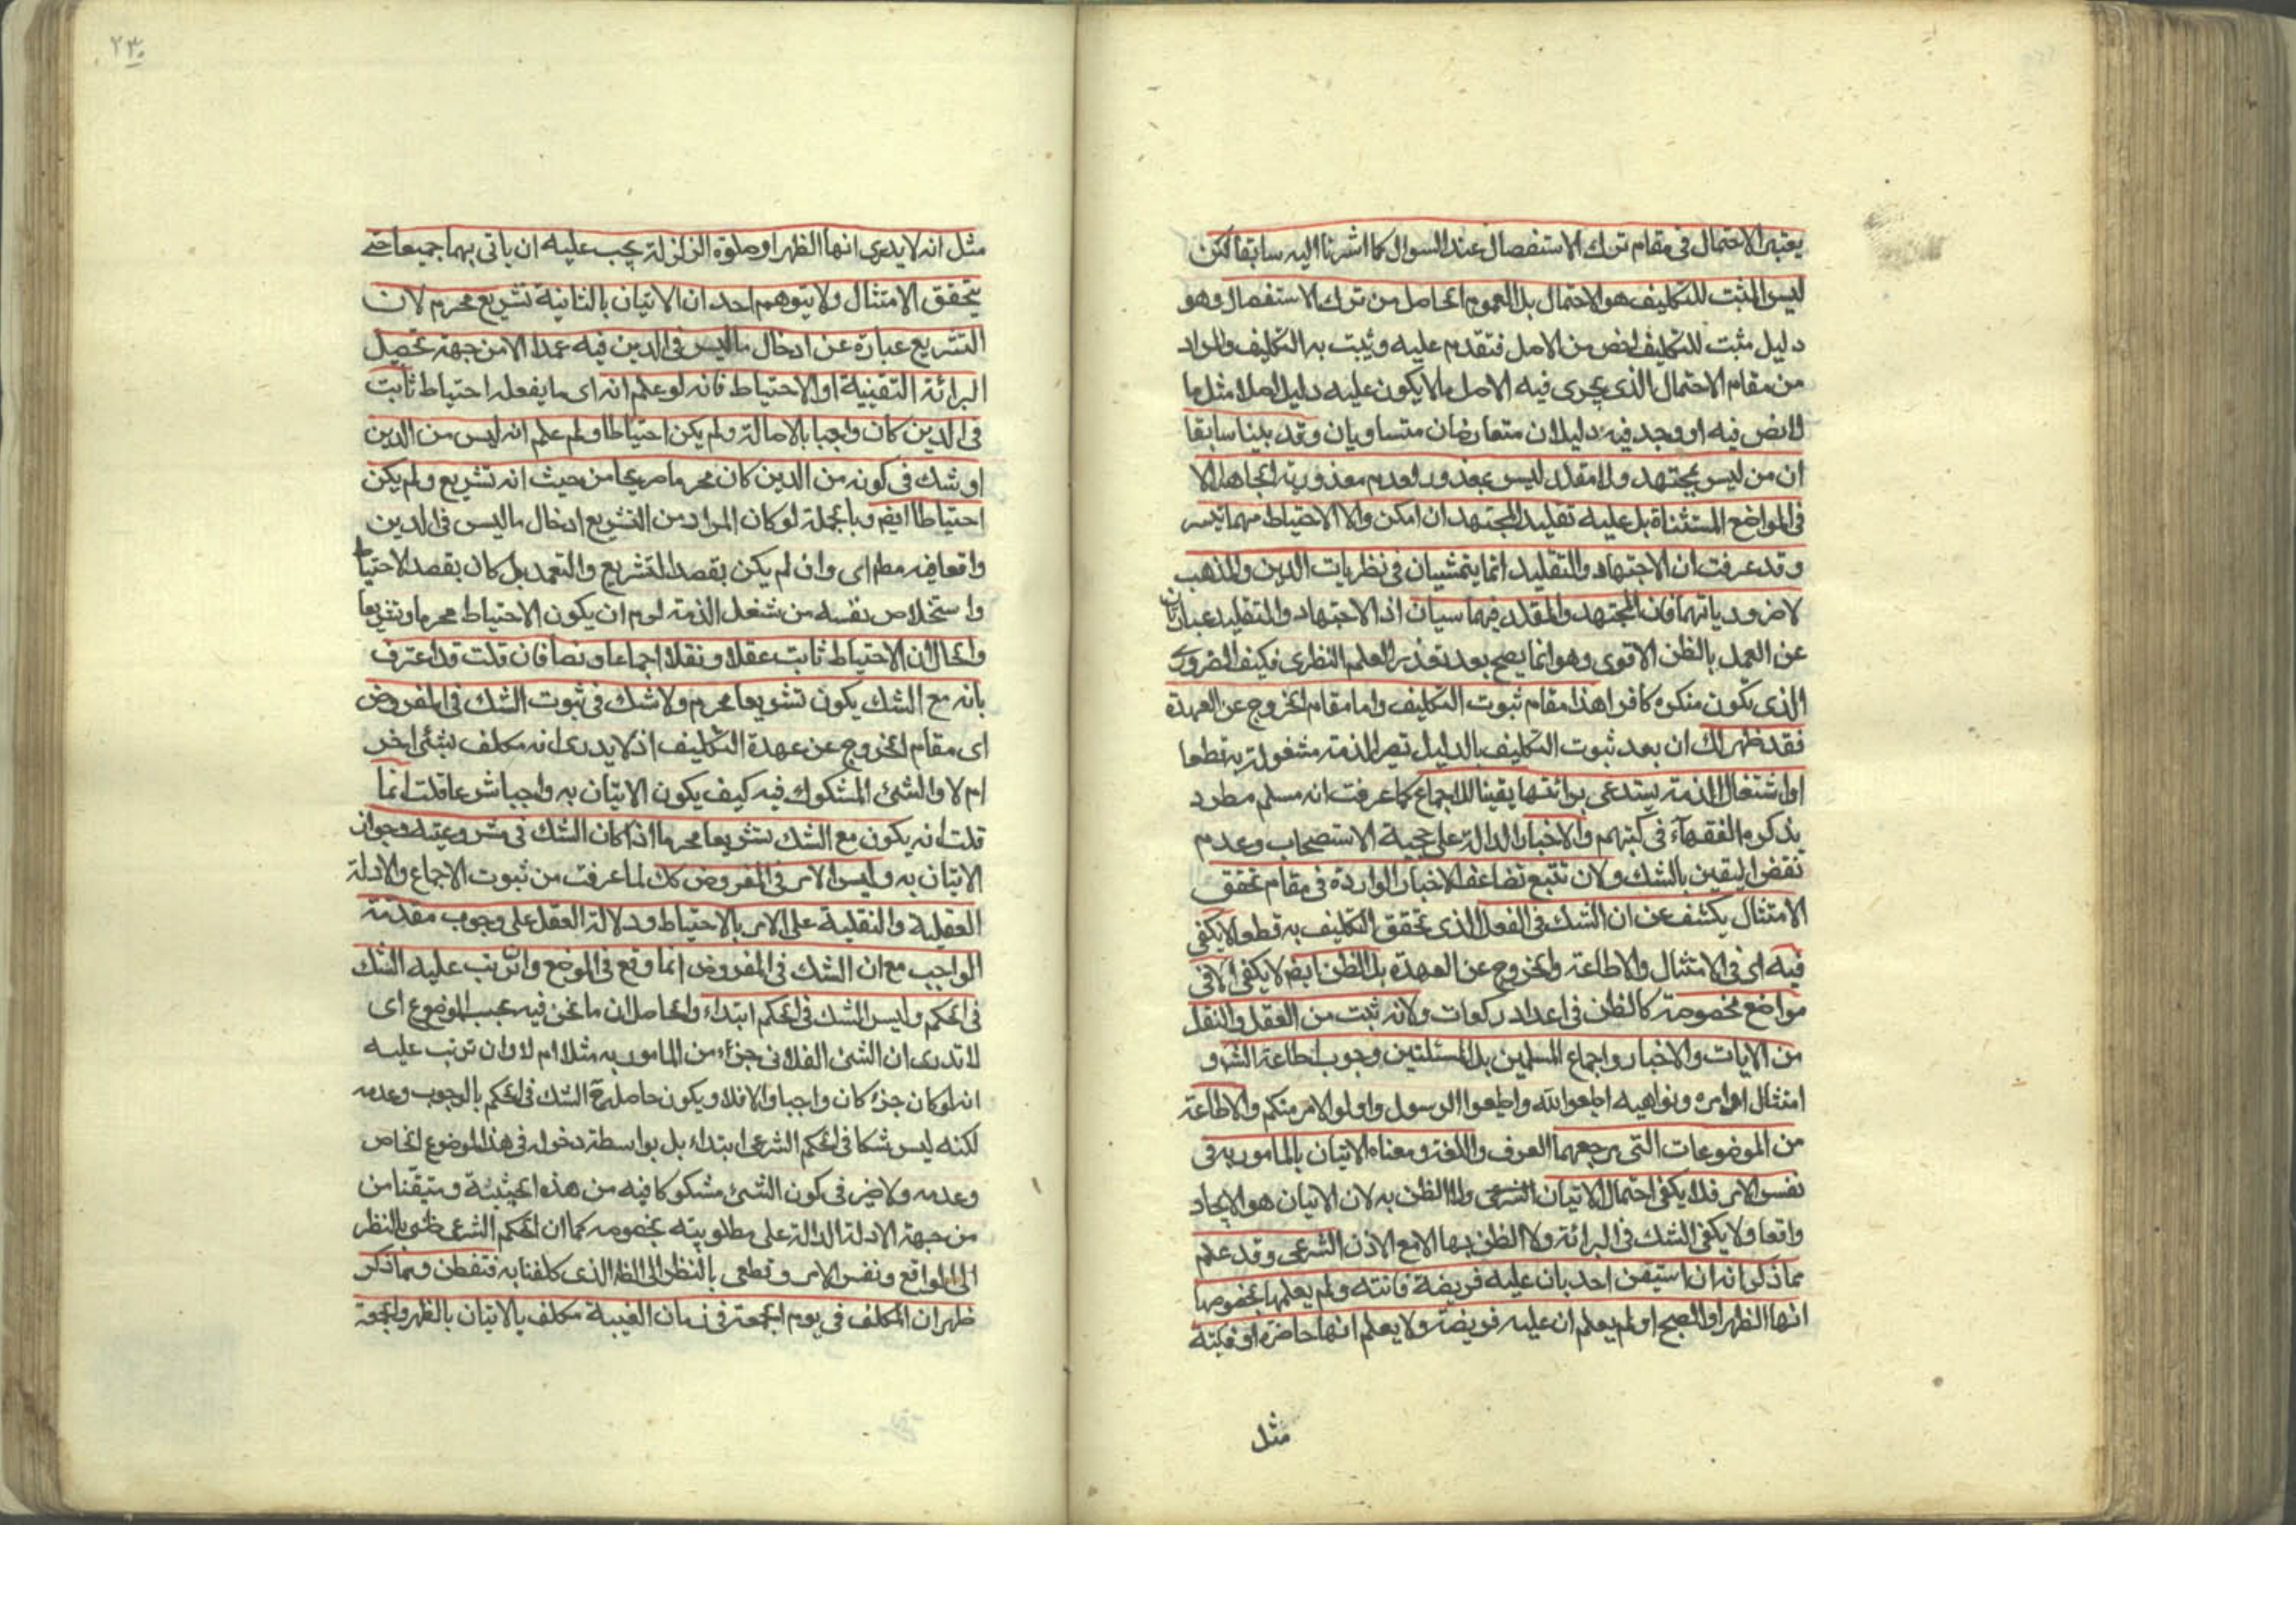 يعتبر الاحتمال في مقام ترك الاستفصال عند السوال كما اشرنا اليه سابقا لكن
ليس المثبت للتكليف هو الاحتمال بل العموم الحاصل من ترك الاستفصال وهو
دليل مثبت للتكليف اخص من الاصل فتقدم عليه ويثبت به التكليف والمراد
من مقام الاحتمال الذى يجرى فيه الاصل ما لا يكون عليه دليل اصلا مثل ما
لا نص فيه او وجد فيه دليلان متعارضان متساويان وقد بينا سابقا
ان من ليس بمجتهد ولا مقلد ليس بمعذور لعدم معذورية الجاهل الا
فى المواضع المستثناة بل عليه تقليد المجتهد ان امكن والا الاحتياط مهما تيسر
وقد عرفت ان الاجتهاد والتقليد انما يتمشيان فى نظريات الدين والمذهب
لا ضرورياتهما فان المجتهد والمقلد فيهما سيان اذ الاجتهاد والتقليد عبارتان
عن العمل بالظن الاقوى وهو انما يصح بعد تعذر العلم النظرى فكيف الضرورى
الذى يكون منكره كافرا هذا مقام ثبوت التكليف واما مقام الخروج عن العهدة
فقد ظهر لك ان بعد ثبوت التكليف بالدليل تصير الذمة مشغولة به قطعا
او اشتغال الذمة يستدعى برائتها يقينا للاجماع كما عرفت انه مسلم مطرد
يذكره الفقهآء فى كتبهم والاخبار الدالة على حجية الاستصحاب وعدم
نقض اليقين بالشك ولان تتبع تضاعف الاخبار الواردة فى مقام تحقق
الامتثال يكشف عن ان الشك فى الفعل الذى تحقق التكليف به قطعا لا يكفى
فيه اى فى الامتثال والاطاعة والخروج عن العهدة بل الظن ايضم لا يكفى الا فى
مواضع مخصوصة كالظن فى اعداد ركعات ولانه ثبت من العقل والنقل
من الايات والاخبار واجماع المسلمين بل المسلمين وجوب اطاعة الشرع و
امتثال اوامره ونواهيه اطيعوا الله واطيعوا الرسول واولو الامر منكم والاطاعة
من الموضوعات التى مرجعهما العرف واللغة ومعناه الاتيان بالمامور به فى
نفس الامر فلا يكفى احتمال الاتيان الشرعى ولا الظن به لان الاتيان هو الايجاد
واقعا ولا يكفى الشك فى البرائة ولا الظن بها الا مع الاذن الشرعى وقد علم
مما ذكر انه ان استيقن احد بان عليه فريضة فائتة ولم يعلمها بخصوصها
انها الظهر او الصبح او لم يعلم ان عليه فريضة ولا يعلم انها حاضرة او فائتة
مثل
٢٣٠
مثل انه لا يدرى انها الظهر او صلوة الزلزلة يجب عليه ان ياتى بهما جميعا حتى
يتحقق الامتثال ولا يتوهم احد ان الاتيان بالثانية تشريع محرم لان
التشريع عبارة عن ادخال ما ليس فى الدين فيه عمدا لا من جهة تحصيل
البرائة اليقينية او الاحتياط فانه لو علم انه اى ما يفعله احتياط ثابت
فى الدين كان واجبا بالاصالة ولم يكن احتياطا ولم علم انه ليس من الدين
او شك فى كونه من الدين كان محرما صريحا من حيث انه تشريع ولم يكن
احتياطا ايضم وبالجملة لو كان المراد من التشريع ادخال ما ليس فى الدين
واقعا فيه مطم اى وان لم يكن بقصد التشريع والتعمد بل كان بقصد الاحتياط
واستخلاص نفسه من شغل الذمة لوم ان يكون الاحتياط محرما وتشريعا
والحال ان الاحتياط ثابت عقلا ونقلا اجماعا ونصا فان قلت قد اعترف
بانه مع الشك يكون تشريعا محرم ولا شك فى ثبوت الشك فى المفروض
اى مقام الخروج عن عهدة التكليف اذ لا يدرى انه مكلف بشئ اخر
ام لا والشئ المشكوك فيه كيف يكون الاتيان به واجبا شرعا قلت انما
قلت انه يكون مع الشك تشريعا محرما اذا كان الشك فى مشروعيته وجواز
الاتيان به وليس الامر فى المفروض كك لما عرفت من ثبوت الاجماع والادلة
العقلية والنقلية على الامر بالاحتياط ودلالة العقل على وجوب مقدمة
الواجب مع ان الشك فى المفروض انما وقع فى الموضع وان ترتب عليه الشك
فى الحكم وليس الشك فى الحكم ابتداء والحاصل ان ما نحن فيه بحسب الموضوع اى
لا تدرى ان الشئ الفلانى جزء من المامور به مثلا ام لا وان ترتب عليه
انه لو كان جزء كان واجبا والا فلا ويكون حاصله ح الشك فى الحكم بالوجوب وعدمه
لكنه ليس شكا فى الحكم الشرعى ابتداء بل بواسطة دخوله فى هذا الموضوع الخاص
وعدمه ولا ضير فى كون الشئ مشكوكا فيه من هذه الحيثية ومتيقنا من
من جهة الادلة الدالة على مطلوبيته بخصوصه كما ان الحكم الشرعى ظنى بالنظر
الى الواقع ونفس الامر وقطعى بالنظر الى الظ الذى كلفنا به فتفطن ومما ذكر
ظهر ان المكلف فى يوم الجمعة فى زمان الغيبة مكلف بالاتيان بالظهر والجمعة